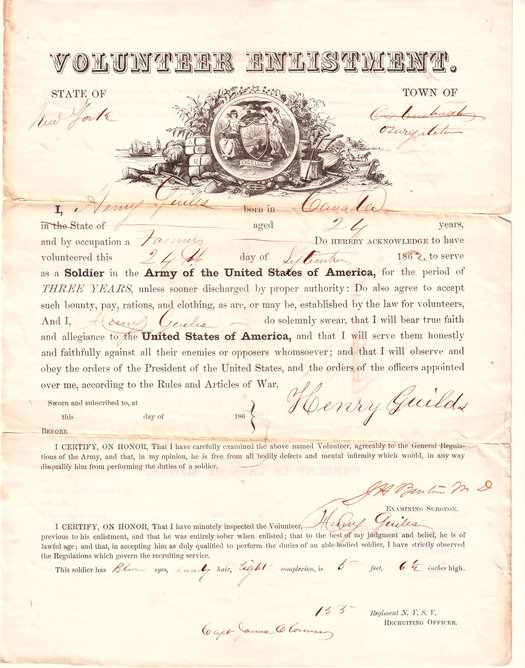 VOLUNTEER ENLISTMENT.
STATE OF TOWN OF
New York
EXCELSIOR
I, Henry Guiles born in Canada
in the State of aged 24 years,
and by occupation a Farmer Do HEREBY ACKNOWLEDGE to have
volunteered this 24th day of September 1862, to serve
as a Soldier in the Army of the United States of America, for the period of
THREE YEARS, unless sooner discharged by proper authority: Do also agree to accept
such bounty, pay, rations, and clothing, as are, or may be, established by the law for volunteers,
And I, Henry Guiles do solemnly swear, that I will bear true faith
and allegiance to the United States of America, and that I will serve them honestly
and faithfully against all their enemies or opposers whomsoever; and that I will observe and
obey the orders of the President of the United States, and the orders of the officers appointed
over me, according to the Rules and Articles of War.
Sworn and subscribed to, at
this day of 186
BEFORE
Henry Guilds
I CERTIFY, ON HONOR, That I have carefully examined the above named Volunteer, agreeably to the General Regula-
tions of the Army, and that, in my opinion, he is free from all bodily defects and mental infirmity which would, in any way
disqualify him from performing the duties of a soldier.
M D
EXAMINING SURGEON.
I CERTIFY, ON HONOR, That I have minutely inspected the Volunteer, Henry Guiles
previous to his enlistment, and that he was entirely sober when enlisted; that to the best of my judgment and belief, he is of
lawful age; and that, in accepting him as duly qualified to perform the duties of an able-bodied soldier, I have strictly observed
the Regulations which govern the recruiting service.
This soldier has Blue eyes, sandy hair, light complexion, is 5 feet, 6½ inches high.
155 Regiment N. Y. S. V.
RECRUITING OFFICER.
Capt James